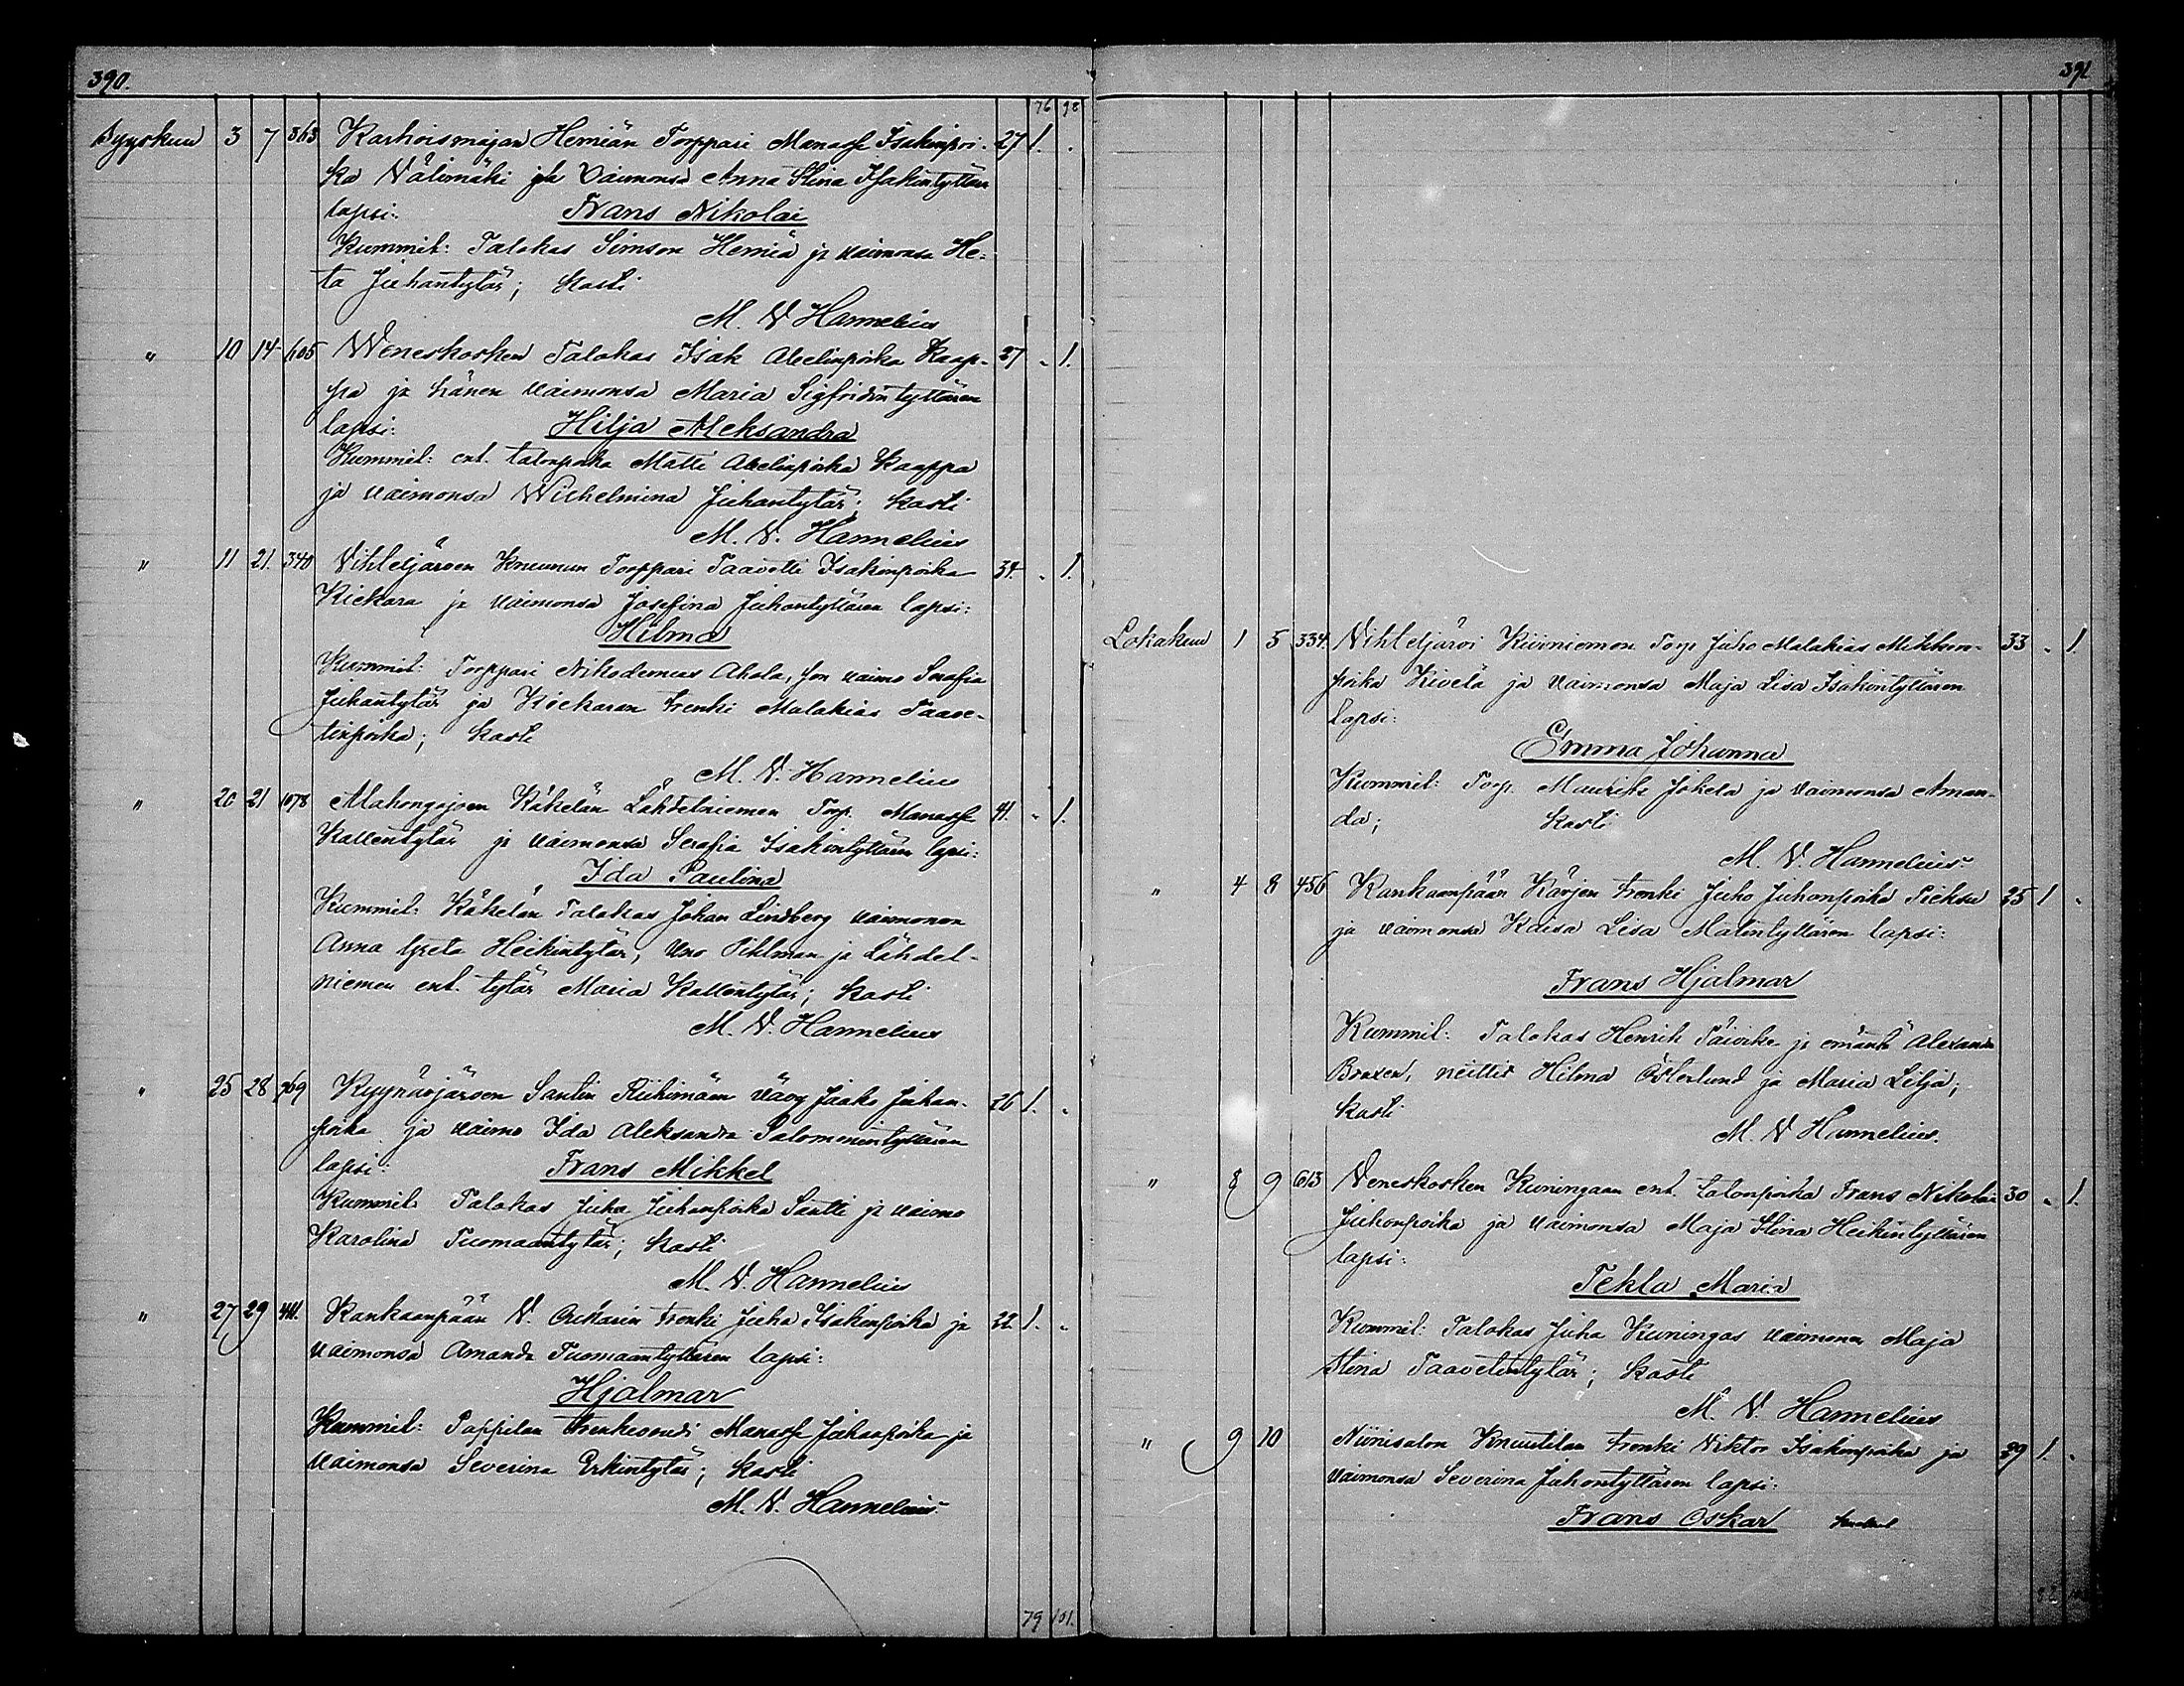 390.
76 98
Syyskuu 3 7 363 Karhoismajan Hemiän Torppari Manasse Isakinpoi- 27 1.
ka Välimäki ja Vaimonsa Anna Stina Isakintyttären
lapsi: Frans Nikolai
Kummit: Talokas Simson Hemiä ja vaimonsa He-
ta Juhantytär; kasti
M. V. Hannelius
" 10 14 605 Weneskosken Talokas Isak Abelinpoika Kaap- 27 " 1.
pa ja hänen vaimonsa Maria Sigfridin tyttären
lapsi: Hilja Aleksandra
Kummit: ent. talonpoika Matti Abelinpoika Kaappa
ja vaimonsa Wilhelmina Juhantytär; kasti
M. V. Hannelius
" 11 21. 340 Vihteljärven Torppari Taavetti Isakinpoika 34. " 1.
Kiekara ja vaimonsa Josefina Juhontyttären lapsi:
Hilma
Kummit: Torppari Nikodemus Ahola, sen vaimo Serafia
Juhantytär ja Kiekaran trenki Malakias Taave-
tinpoika; kasti
M. V. Hannelius
" 20 21 1078 Mahongojoen Käkelän Lähdelniemen Torp. Manasse 41. " 1.
Kallentytär ja vaimonsa Serafia Isakintyttären lapsi:
Ida Paulina
Kummit: Käkelän Talokas Johan Lindberg vaimonon
Anna Greta Heikintytär, Uno Pihlman ja Lähdel-
niemen ent. tytär Maria Kallentytär; kasti
M. V. Hannelius
" 25 28 769 Kyynärjärven Santin Riihimäen Väov Jaako Juhan- 26 1. "
poika ja vaimo Ida Aleksandra Salomonintyttären
lapsi: Frans Mikkel
Kummit: Talokas Juha Juhanpoika Santti ja vaimo
Karolina Tuomaantytär; kasti
M. V. Hannelius
" 27 29 441. Kankaanpään V. trenki Juha Isakinpoika ja 22 1. "
vaimonsa Amanda Tuomaantyttären lapsi:
Hjalmar
Kummit: Pappilan trenkivouti Manasse Juhanpoika ja
vaimonsa Severina Erkintytär; kasti
M. V. Hannelius
79 101.
391
Lokakuu 1 5 334. Vihteljärvi Kiviniemen Torp Juho Malakias Mikkon- 33 " 1
poika Kivelä ja vaimonsa Maja Lisa Isakintyttären
lapsi:
Emma Johanna
Kummit: Torp. Maurits Jokela ja vaimonsa Aman-
da; kasti
M. V. Hannelius
" 4 8 456 Kankaanpään Kärjen trenki Juho Juhonpoika Pieksu 25 1 "
ja vaimonsa Kaisa Lisa Matintyttären lapsi:
Frans Hjalmar
Kummit: Talokas Henrik Päivike ja emäntä Alexandra
Boxen, neittit Hilma Österlund ja Maria Lilja;
kasti
M. V. Hannelius.
" 8 9 613 Veneskosken Kuningaan ent. talonpoika Frans Nikolai 30 " 1.
Juhonpoika ja vaimonsa Maja Stina Heikintyttären
lapsi:
Tekla Maria
Kummit: Talokas Juha Kuningas vaimonon Maja
Stina Taavetintytär; kasti
M. V. Hannelius
" 9 10 Niinisalon Knuutilan trenki Viktor Isakinpoika ja 29 1. "
vaimonsa Severina Juhontyttären lapsi:
Frans Oskar
82